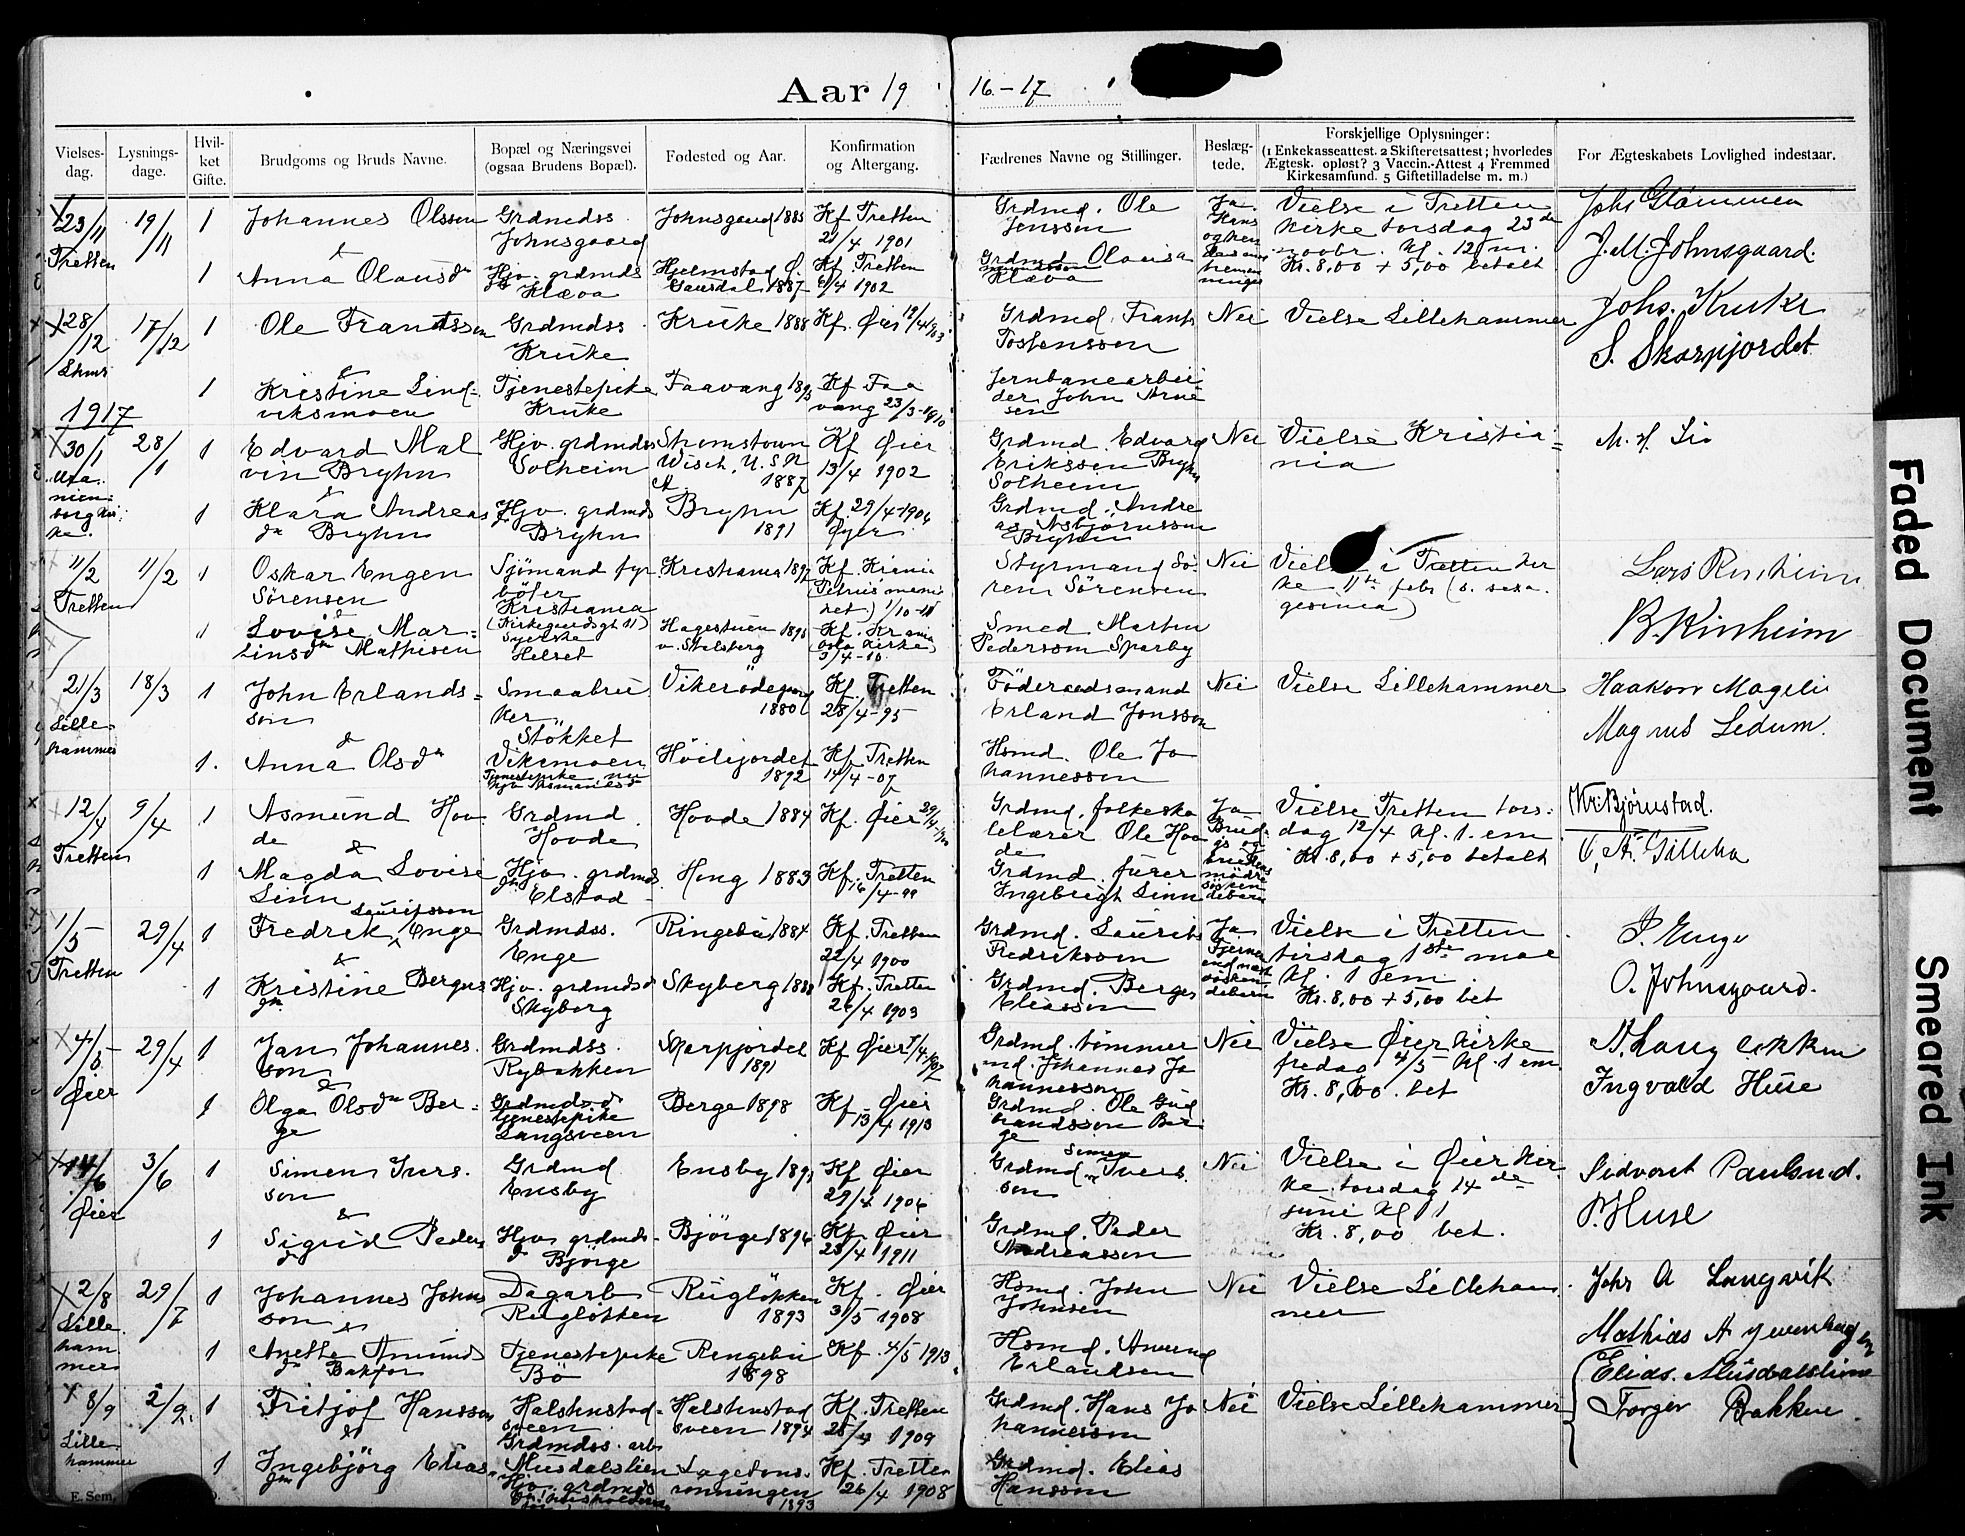 Aar 19 16-17
Vielses-dag.
Lysnings-dage.
Hvil-ket Gifte.
Brudgoms og Bruds Navne.
Bopæl og Næringsvei (ogsaa Brudens Bopæl).
Fødested og Aar.
Konfirmation og Altergang.
Fædrenes Navne og Stillinger.
Beslæg-tede.
Forskjellige Oplysninger:
(1 Enkekasseattest. 2 Skifteretsattest; hvorledes
Ægtesk. opløst? 3 Vaccin.-Attest 4 Fremmed
Kirkesamfund. 5 Giftetilladelse m. m.)
For Ægteskabets Lovlighed indestaar.
23/11 Tretten 19/11 1 Johannes Olsson Grdmdss. Johnsgaard Johnsgaard 1885 Kf. Tretten 21/4 1901 Grdmd. Ole Jensson Ja Vielse i Tretten Kirke torsdag 23de novbr. kl. 12 m. Kr. 8,00 + 5,00 betalt J. M. Johnsgaard.
& 1 Anna Olausdr Hjv. grdmds Klæva Hjelmstad Ø. Gausdal 1887 Kf. Tretten 6/4 1902 Grdmd Olaus Klæva
28/12 Lhmr 17/12 1 Ole Frantsson Grdmdss Kruke Kruke 1888 Kf. Øier 12/4 1903 Grdmd. Frants Tostensson Nei Vielse Lillehammer Johs. Kruke S. Skarpjordet
& 1 Kristine Lindviksmoen Tjenestepike Kruke Faavang 1893 Kf Faavang 23/3-1910 Jernbanearbeider John Arnesen
1917
30/1 Uranienborg kirke. 28/1 1 Edvard Malvin Bryhn Hjv. grdmdss Solheim Wisch. U.S.N.A. 1887 Kf Øier 13/4 1902 Grdmd. Edvard Erikssen Bryhn Solheim Nei Vielse Kristiania M. H. Li
& 1 Klara Andreasdr Bryhn Hjv. grdmds Bryhn Bryhn 1891 Kf. 29/4-1906 Øyer Grdmd. Andreas Asbjørnsson Bryhn
11/2 Tretten 11/2 1 Oskar Engen Sørensen Sjömand fyrböter Kristiania (Kirkegaardsgt 11) Kristiania 1897 Kf. Kr.ania (Petrus menighet) 1/10-11 Styrmand Sören Sörensen Nei Vielse i Tretten kirke 11te febr (s. sexagesima) Lars Rinheim B. Rinheim
& 1 Lovise Martinsdr Mathisen Syerske Helset Hagestuen 1895 v. Stalsberg Kf. Kr.ania Oslo Kirke 3/4-10 Smed Martin Pedersson Sparby
21/3 Lillehammer 18/3 1 John Erlandsson Smaabruker Stökket Vikerödegaard 1880 Kf. Tretten 28/4-95 Föderaadsmand Erland Jonsson Nei Vielse Lillehammer Haakon Mageli Magnus Ledum.
& 1. Anna Olsdr Vikemoen Tjenestepike nu hjv. Höilijordet 1892 Kf Tretten 14/4-07 Hsmd. Ole Johannesson
12/4 Tretten 9/4 1 Asmund Hovde Grdmd. Hovde Hovde 1884 Kf. Øier Grdmd. folkeskolelærer Ole Hovde Ja Vielse Tretten torsdag 12/4 kl. 1. em Kr. 8,00 + 5,00 betalt Kr. Bjørnstad.
& 1 Magda Lovise Linn Hjv. grdmds. Elstad Hong 1883 Kf. Tretten 16/4-99 Grdmd. furer Ingebrigt Linn
1/5 Tretten 29/4 1 Fredrik Lauritsson Enge Grdmdss. Enge Ringebu 1884 Kf. Tretten 22/4 1900 Grdmd. Laurits Fredriksson Ja Vielse i Tretten tirsdag 1ste mai kl. 1 em. Kr. 8,00 + 5,00 bet P. Enge O. Johnsgaard.
& 1 Kristine Bergersdr Hjv. grdmdsd Skyberg Skyberg 1888 Kf. Tretten 26/4 1903 Grdmd Berger Eliasson
4/5 Øier 29/4 1 Jan Johannesson Grdmdss. Rybakken Skarpjordet 1891 Kf Øier Grdmd. tömmermd. Johannes Johannesson Nei Vielse Øier kirke fredag 4/5 kl 1 em Kr. 8,00. bet Ingvald Huse
& 1 Olga Olsdr Berge Grdmdsd tjenestepike Langsveen Berge 1898 Kf. Øier 13/4 1913 Grdmd. Ole Gudbrandsson Berge
14/6 Øier 3/6 1 Simen Iversson Grdmd Ensby Ensby 1891 Kf Øier 29/4 1906 Grdmd Simen Iversson Nei Vielse i Øier kirke torsdag 14de juni kl 1 Kr. 8,00 bet. P. Huse
& 1 Sigrid Pedersdr Hjv grdmdsd Bjørge Bjørge 1896 Kf Øier 23/4 1911 Grdmd. Peder Andreasson
2/8 Lillehammer 29/7 1 Johannes Johnsson Dagarb Rugløkken Rugløkken 1893 Kf. Øier 31/5 1908 Hsmd. John Johnsen Nei Vielse Lillehammer Johs A Langvik Mathias A
& 1 Anette Amundsdr Bakken Tjenestepike Bö Ringebu 1898 Kf. 4/5 1913 Hsmd. Amund Erlandsen
8/9 Lillehammer 2/9. 1 Fritjof Hansson Halstenstadsveen Grdmdss. arb Halstenstadsveen 1894 Kf. Tretten 25/4 1909 Grdmd. Hans Johannesson Nei Vielse Lillehammer Elias. Musdalslien Torger Bakken.
& 1 Ingebjörg Eliasdr Musdalslien Hjv. grdmds 1893 Kf. Tretten 26/4 1908 Grdmd. Elias Hansson
E. Sem,
Faded Document
Smeared Ink